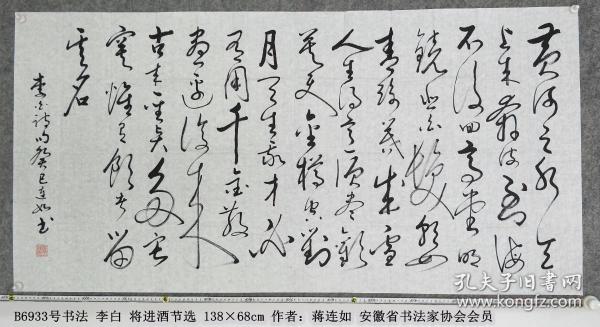 黄河之水天
上来奔流到海
不復回高堂明
镜悲白髮朝如
青絲暮成雪
人生得意须尽歡
莫使金樽空對
月天生我才必
有用千金散
尽还復来
古来圣贤寂
寞惟有飲者留
其名
李白诗句癸巳连如书
孔夫子旧书网
B6933号书法 李白 将进酒节选 138×68cm 作者：蒋连如 安徽省书法家协会会员